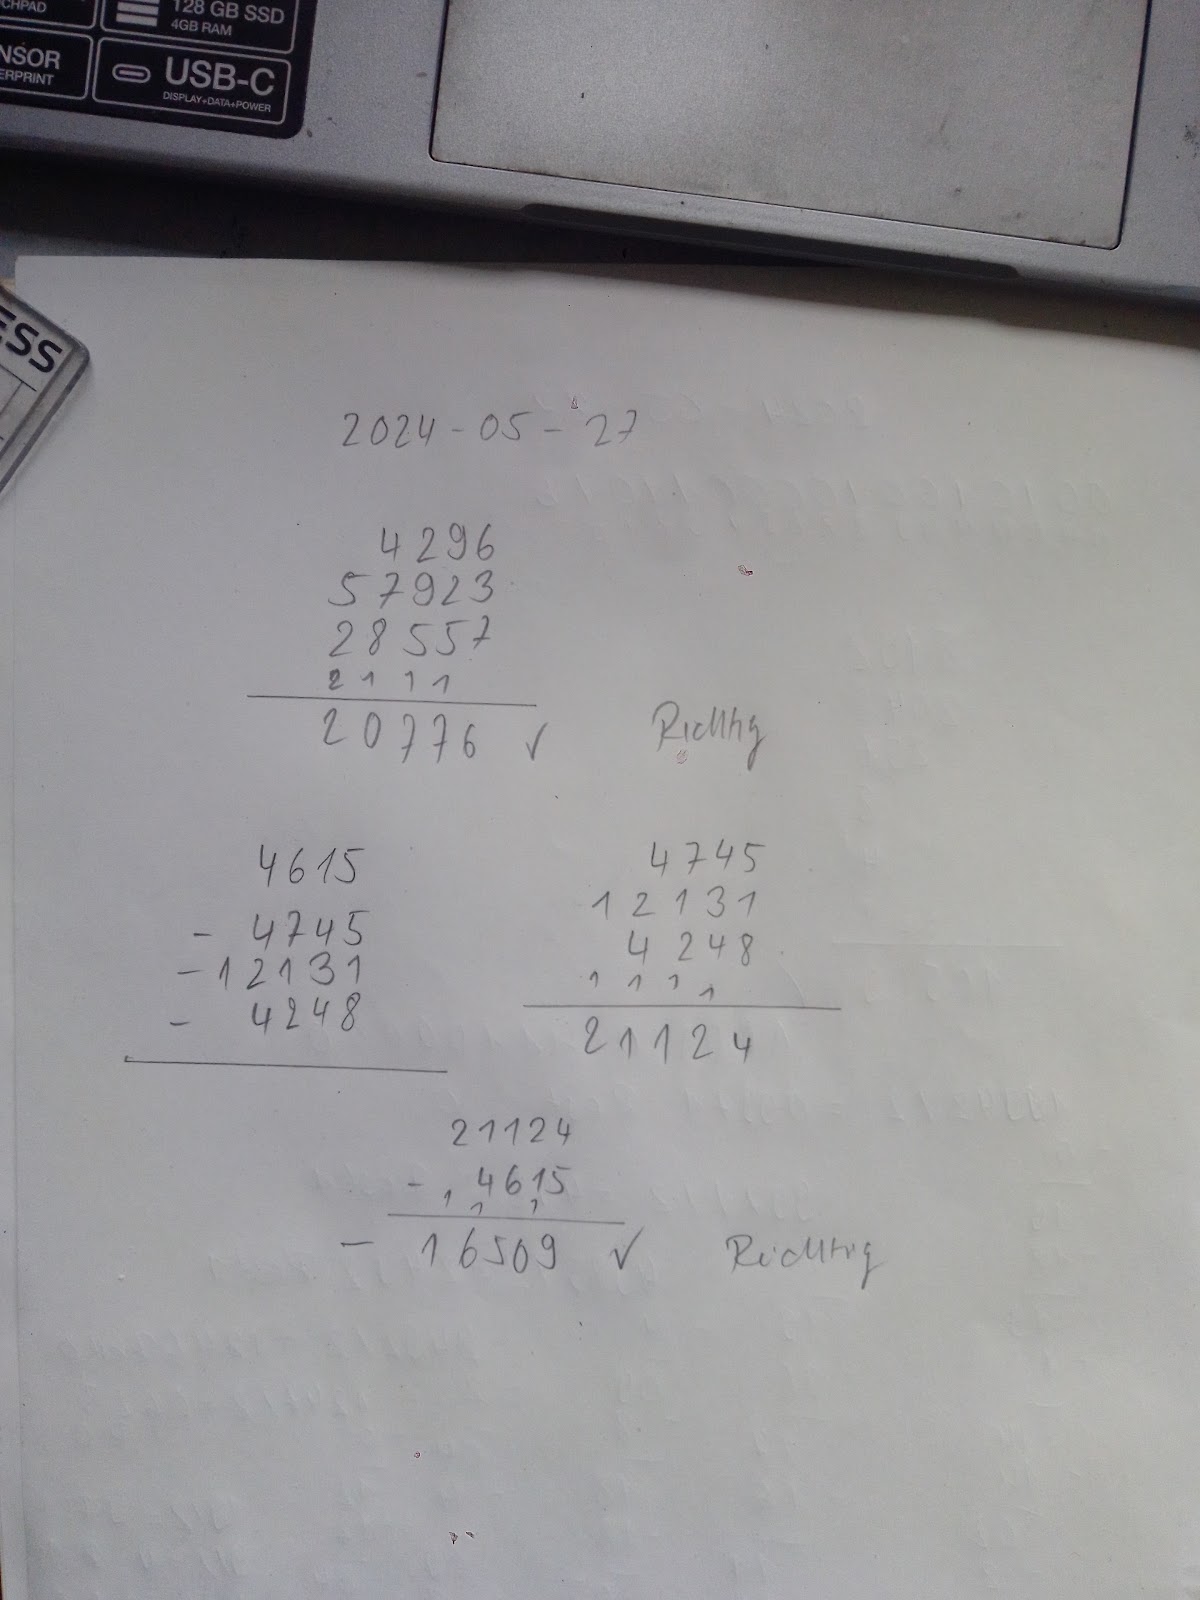 CHPAD
128 GB SSD
4GB RAM
NSOR
ERPRINT
USB-C
DISPLAY+DATA+POWER
ESS
2024-05-27
4296
57923
28557
2 1 1 1
20776 ✓ Richtig
4615
- 4745
- 12131
- 4248
4745
12131
4248
1 1 1 1
21124
21124
- 4615
1 1 1
- 16509 ✓ Richtig